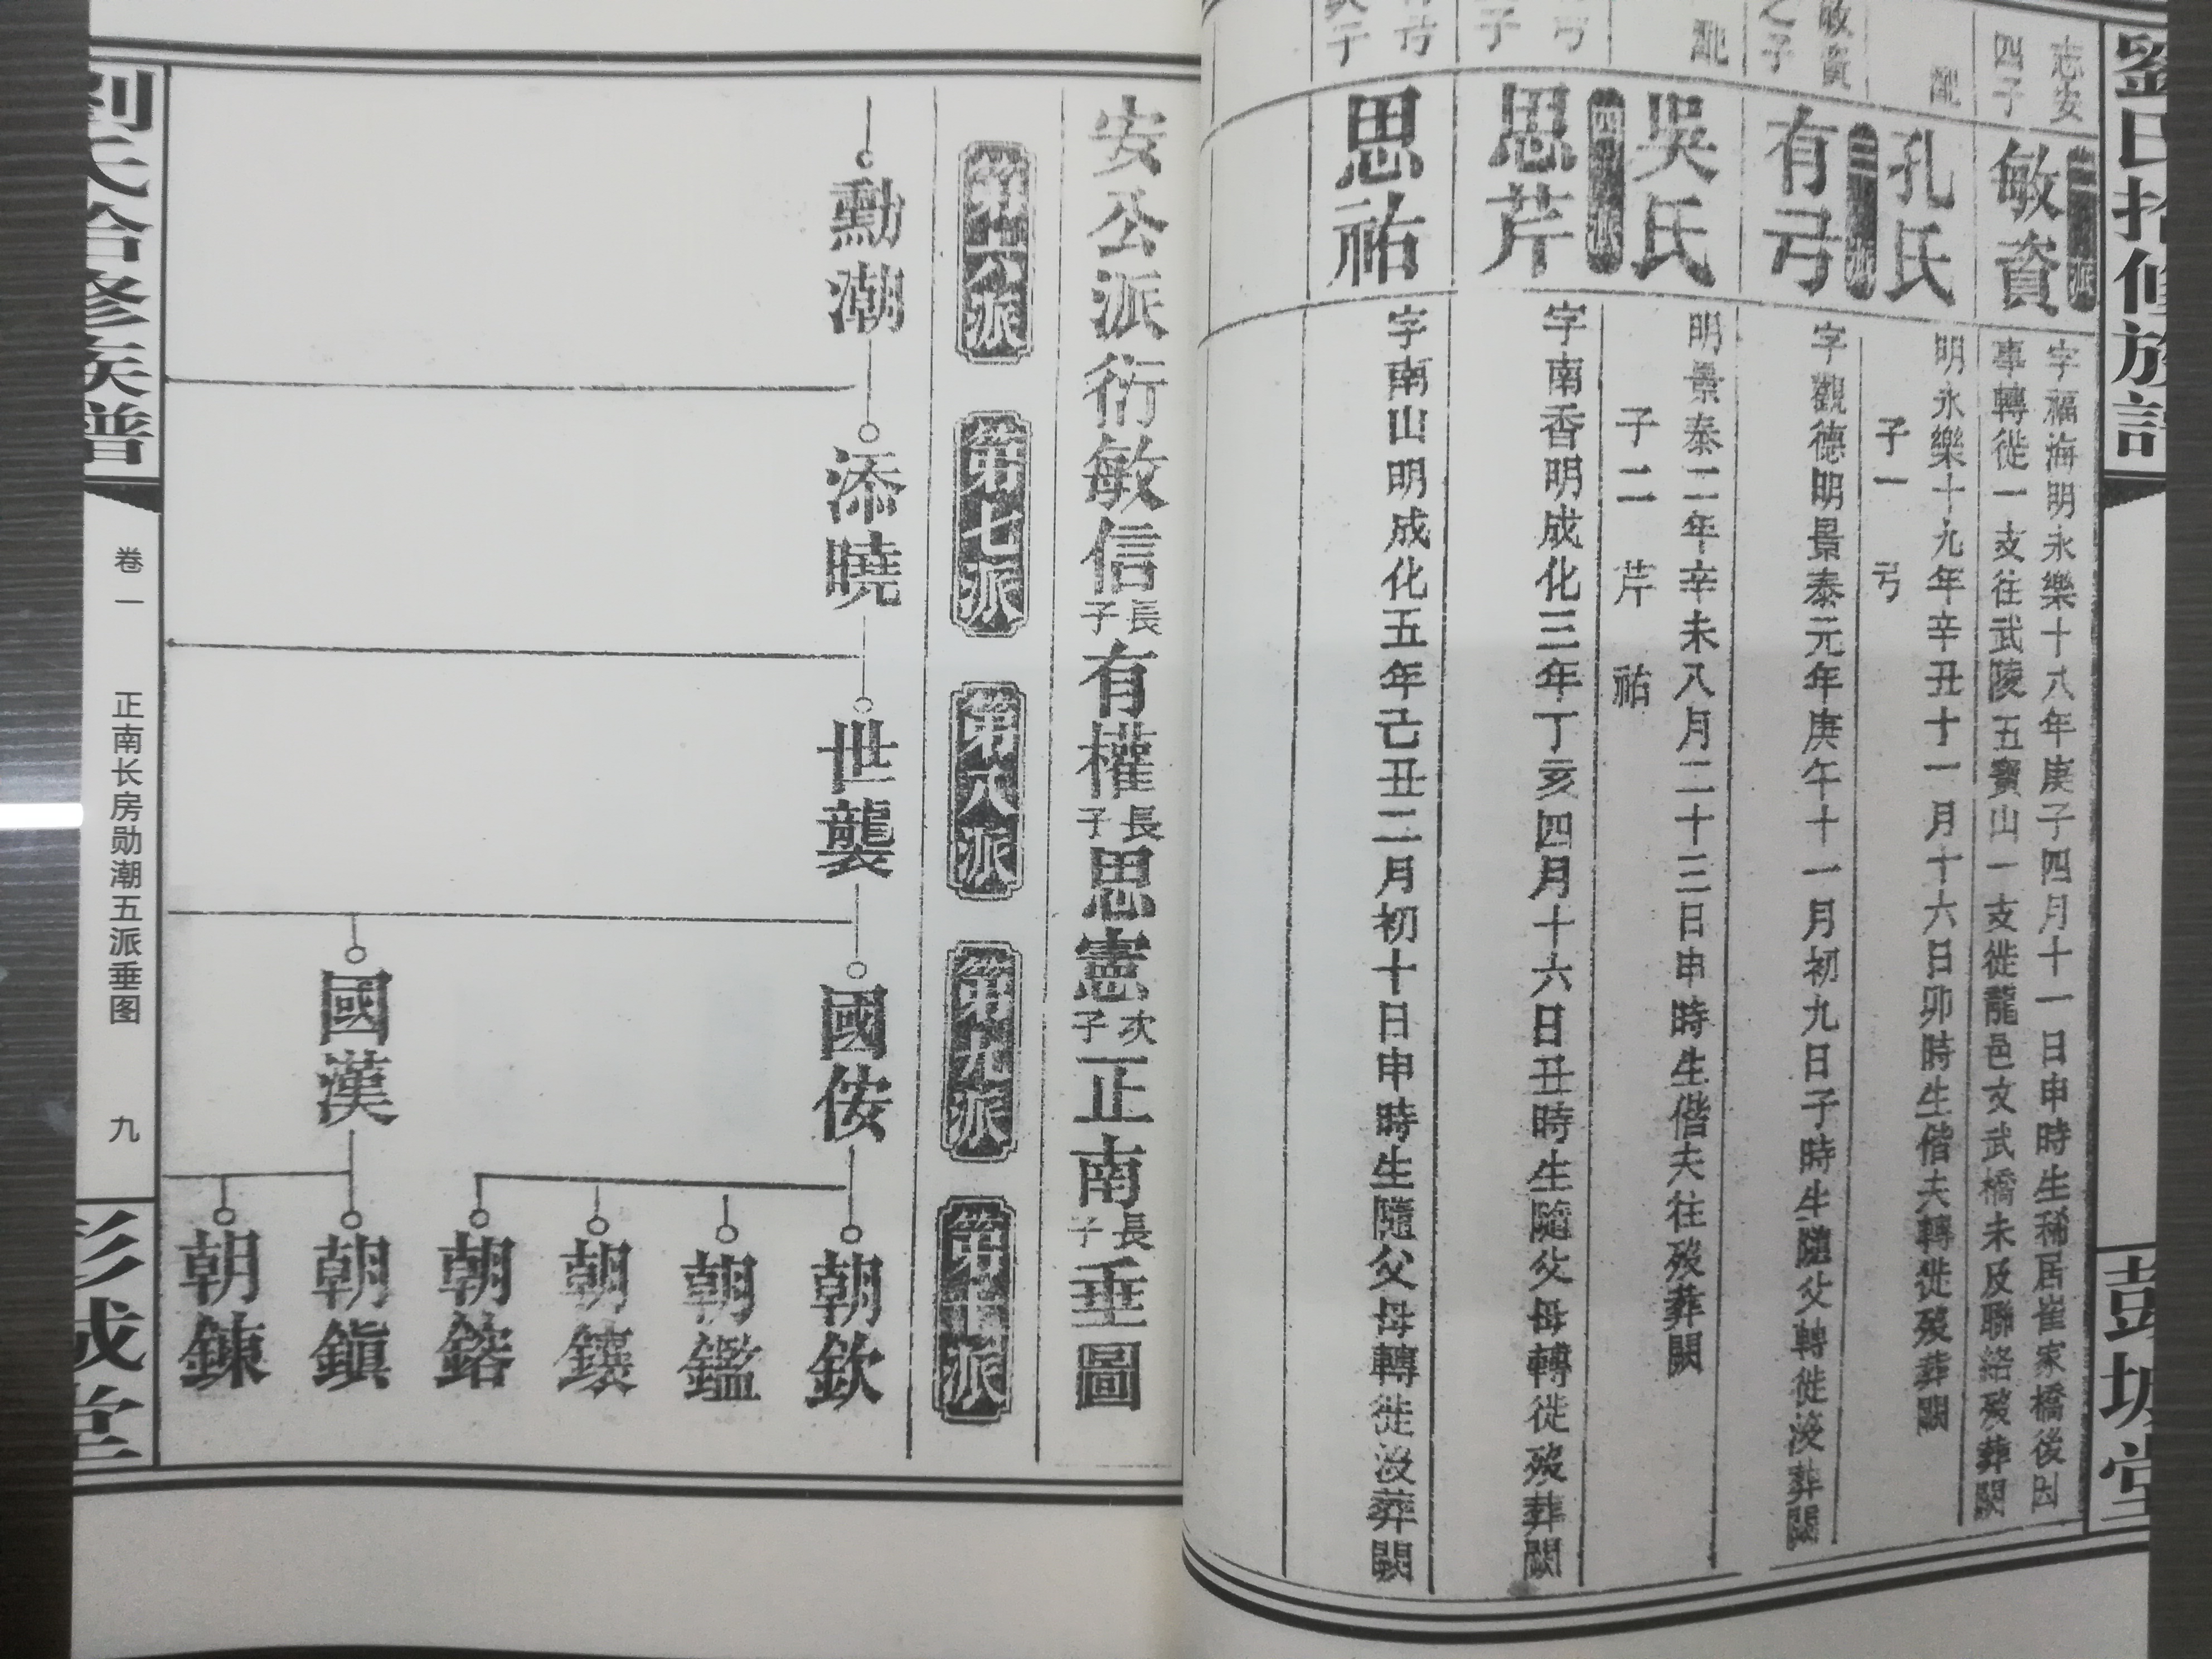 劉氏拾修族譜
彭城堂
志安
四子
二派
敏資
字福海明永樂十八年庚子四月十一日申時生稀居崔家橋後因
事轉徙一支往武陵五寶山一支徙龍邑文武橋未及聯絡歿葬闕
配
孔氏
明永樂十九年辛丑十一月十六日卯時生偕夫轉徙歿葬闕
子一 弓
敏資
之子
三派
有弓
字觀德明景泰元年庚午十一月初九日子時生隨父轉徙沒葬闕
配
吳氏
明景泰二年辛未八月二十三日申時生偕夫往歿葬闕
子二 芹 祐
四派
思芹
字南香明成化三年丁亥四月十六日丑時生隨父母轉徙歿葬闕
思祐
字南山明成化五年己丑二月初十日申時生隨父母轉徙沒葬闕
安公派衍敏信長子有權長子思憲次子正南長子垂圖
第六派
第七派
第八派
第九派
第十派
勳潮
添曉
世襲
國侒
國漢
朝欽
朝鑑
朝鑲
朝鎔
朝鎮
朝鍊
刘氏合修族谱
卷一
正南长房勋潮五派垂图
九
彭城堂